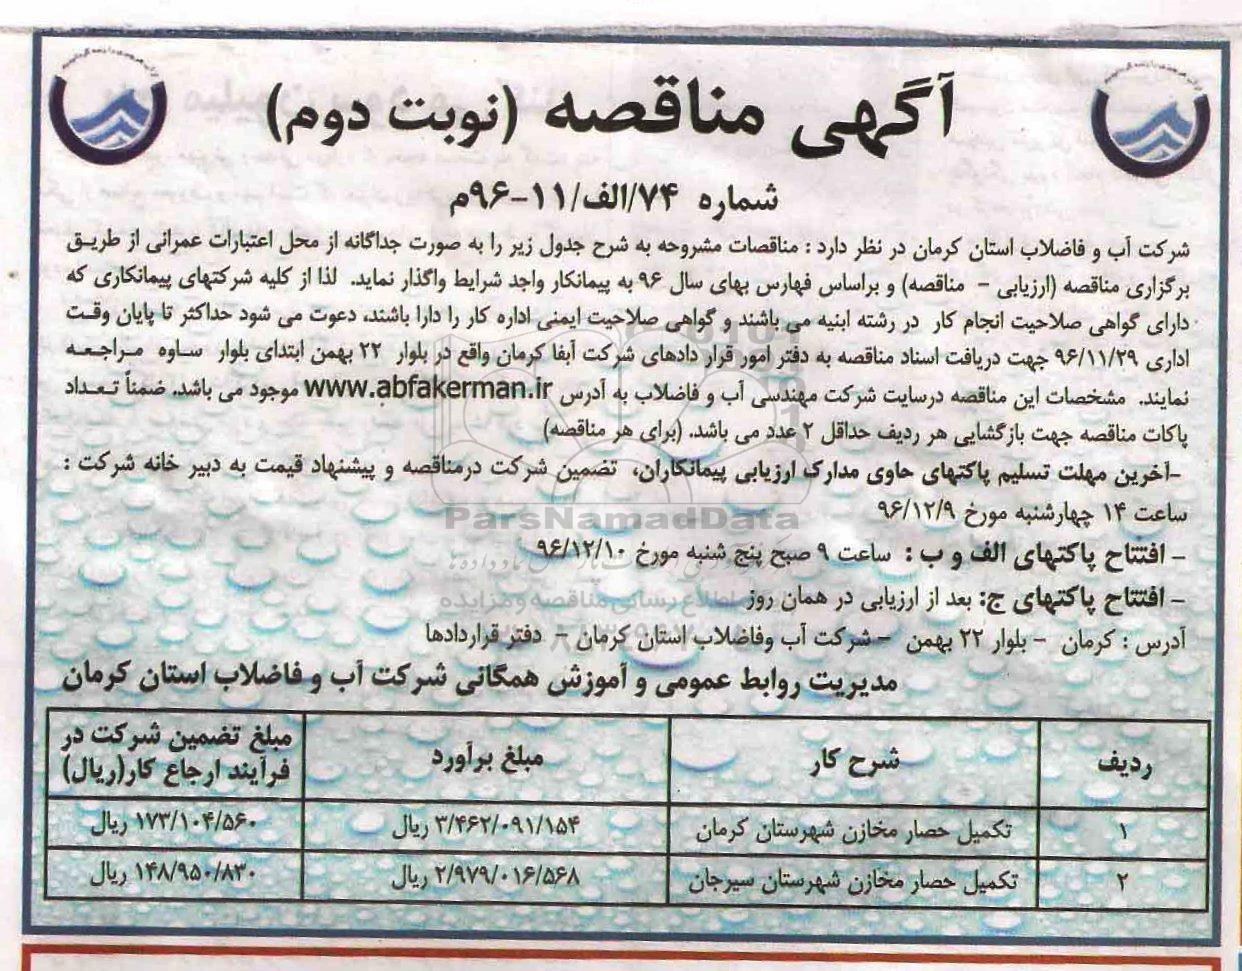 آگهی مناقصه (نوبت دوم)
شماره ۷۴/الف/۱۱-۹۶م
شرکت آب و فاضلاب استان کرمان در نظر دارد : مناقصات مشروحه به شرح جدول زیر را به صورت جداگانه از محل اعتبارات عمرانی از طریق
برگزاری مناقصه (ارزیابی – مناقصه) و براساس فهارس بهای سال ۹۶ به پیمانکار واجد شرایط واگذار نماید. لذا از کلیه شرکتهای پیمانکاری که
دارای گواهی صلاحیت انجام کار در رشته ابنیه می باشند و گواهی صلاحیت ایمنی اداره کار را دارا باشند، دعوت می شود حداکثر تا پایان وقت
اداری ۹۶/۱۱/۲۹ جهت دریافت اسناد مناقصه به دفتر امور قرار دادهای شرکت آبفا کرمان واقع در بلوار ۲۲ بهمن ابتدای بلوار ساوه مراجعه
نمایند. مشخصات این مناقصه درسایت شرکت مهندسی آب و فاضلاب به آدرس www.abfakerman.ir موجود می باشد. ضمناً تعداد
پاکات مناقصه جهت بازگشایی هر ردیف حداقل ۲ عدد می باشد. (برای هر مناقصه)
-آخرین مهلت تسلیم پاکتهای حاوی مدارک ارزیابی پیمانکاران، تضمین شرکت درمناقصه و پیشنهاد قیمت به دبیر خانه شرکت :
ساعت ۱۴ چهارشنبه مورخ ۹۶/۱۲/۹
ParsNamadData
– افتتاح پاکتهای الف و ب : ساعت ۹ صبح پنج شنبه مورخ ۹۶/۱۲/۱۰
– افتتاح پاکتهای ج: بعد از ارزیابی در همان روز
اطلاع رسانی مناقصه و مزایده
آدرس : کرمان – بلوار ۲۲ بهمن – شرکت آب وفاضلاب استان کرمان – دفتر قراردادها
مدیریت روابط عمومی و آموزش همگانی شرکت آب و فاضلاب استان کرمان
ردیف شرح کار مبلغ برآورد مبلغ تضمین شرکت در
فرآیند ارجاع کار(ریال)
۱ تکمیل حصار مخازن شهرستان کرمان ۳/۴۶۲/۰۹۱/۱۵۴ ریال ۱۷۳/۱۰۴/۵۶۰ ریال
۲ تکمیل حصار مخازن شهرستان سیرجان ۲/۹۷۹/۰۱۶/۵۶۸ ریال ۱۴۸/۹۵۰/۸۳۰ ریال